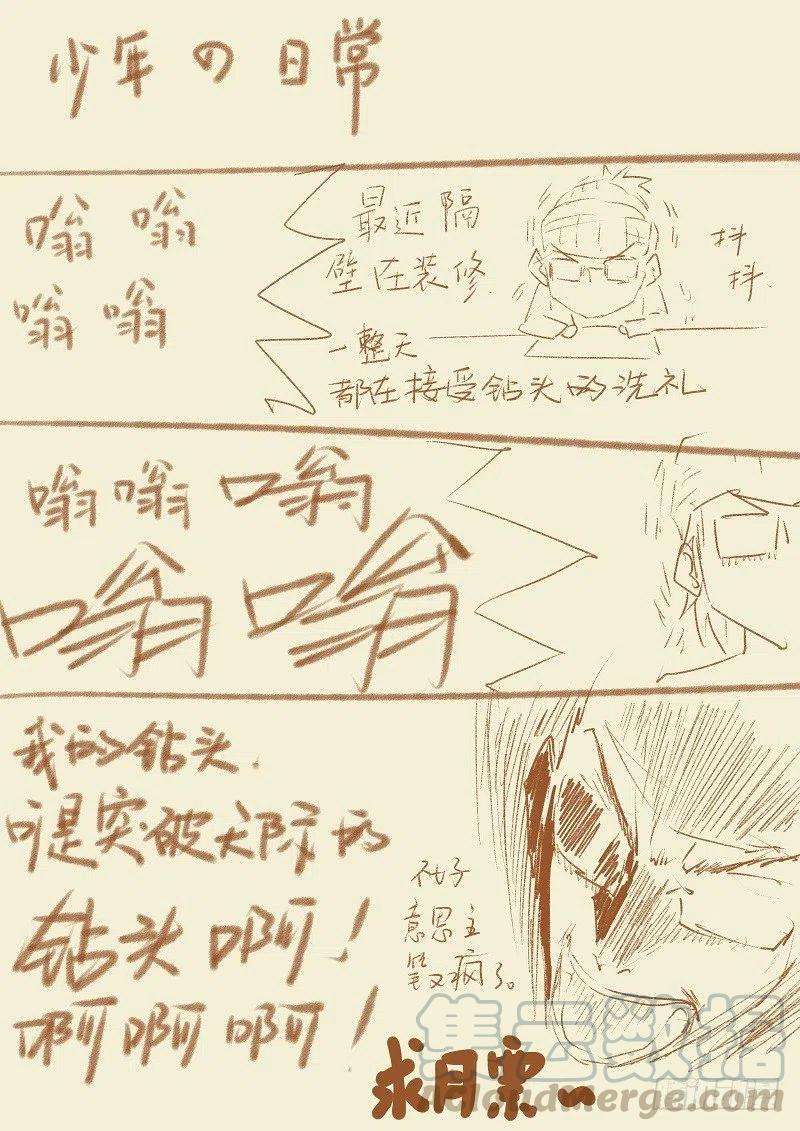 少年の日常
嗡 嗡
嗡 嗡
最近隔
壁在装修.
抖
抖.
一整天
都在接受钻头的洗礼
嗡 嗡 嗡
嗡 嗡
我的钻头.
可是突破天际的
钻头啊！
啊啊啊！
不好
意思主
笔又疯了。
求月票~
集云数据
AcloudMerge.com